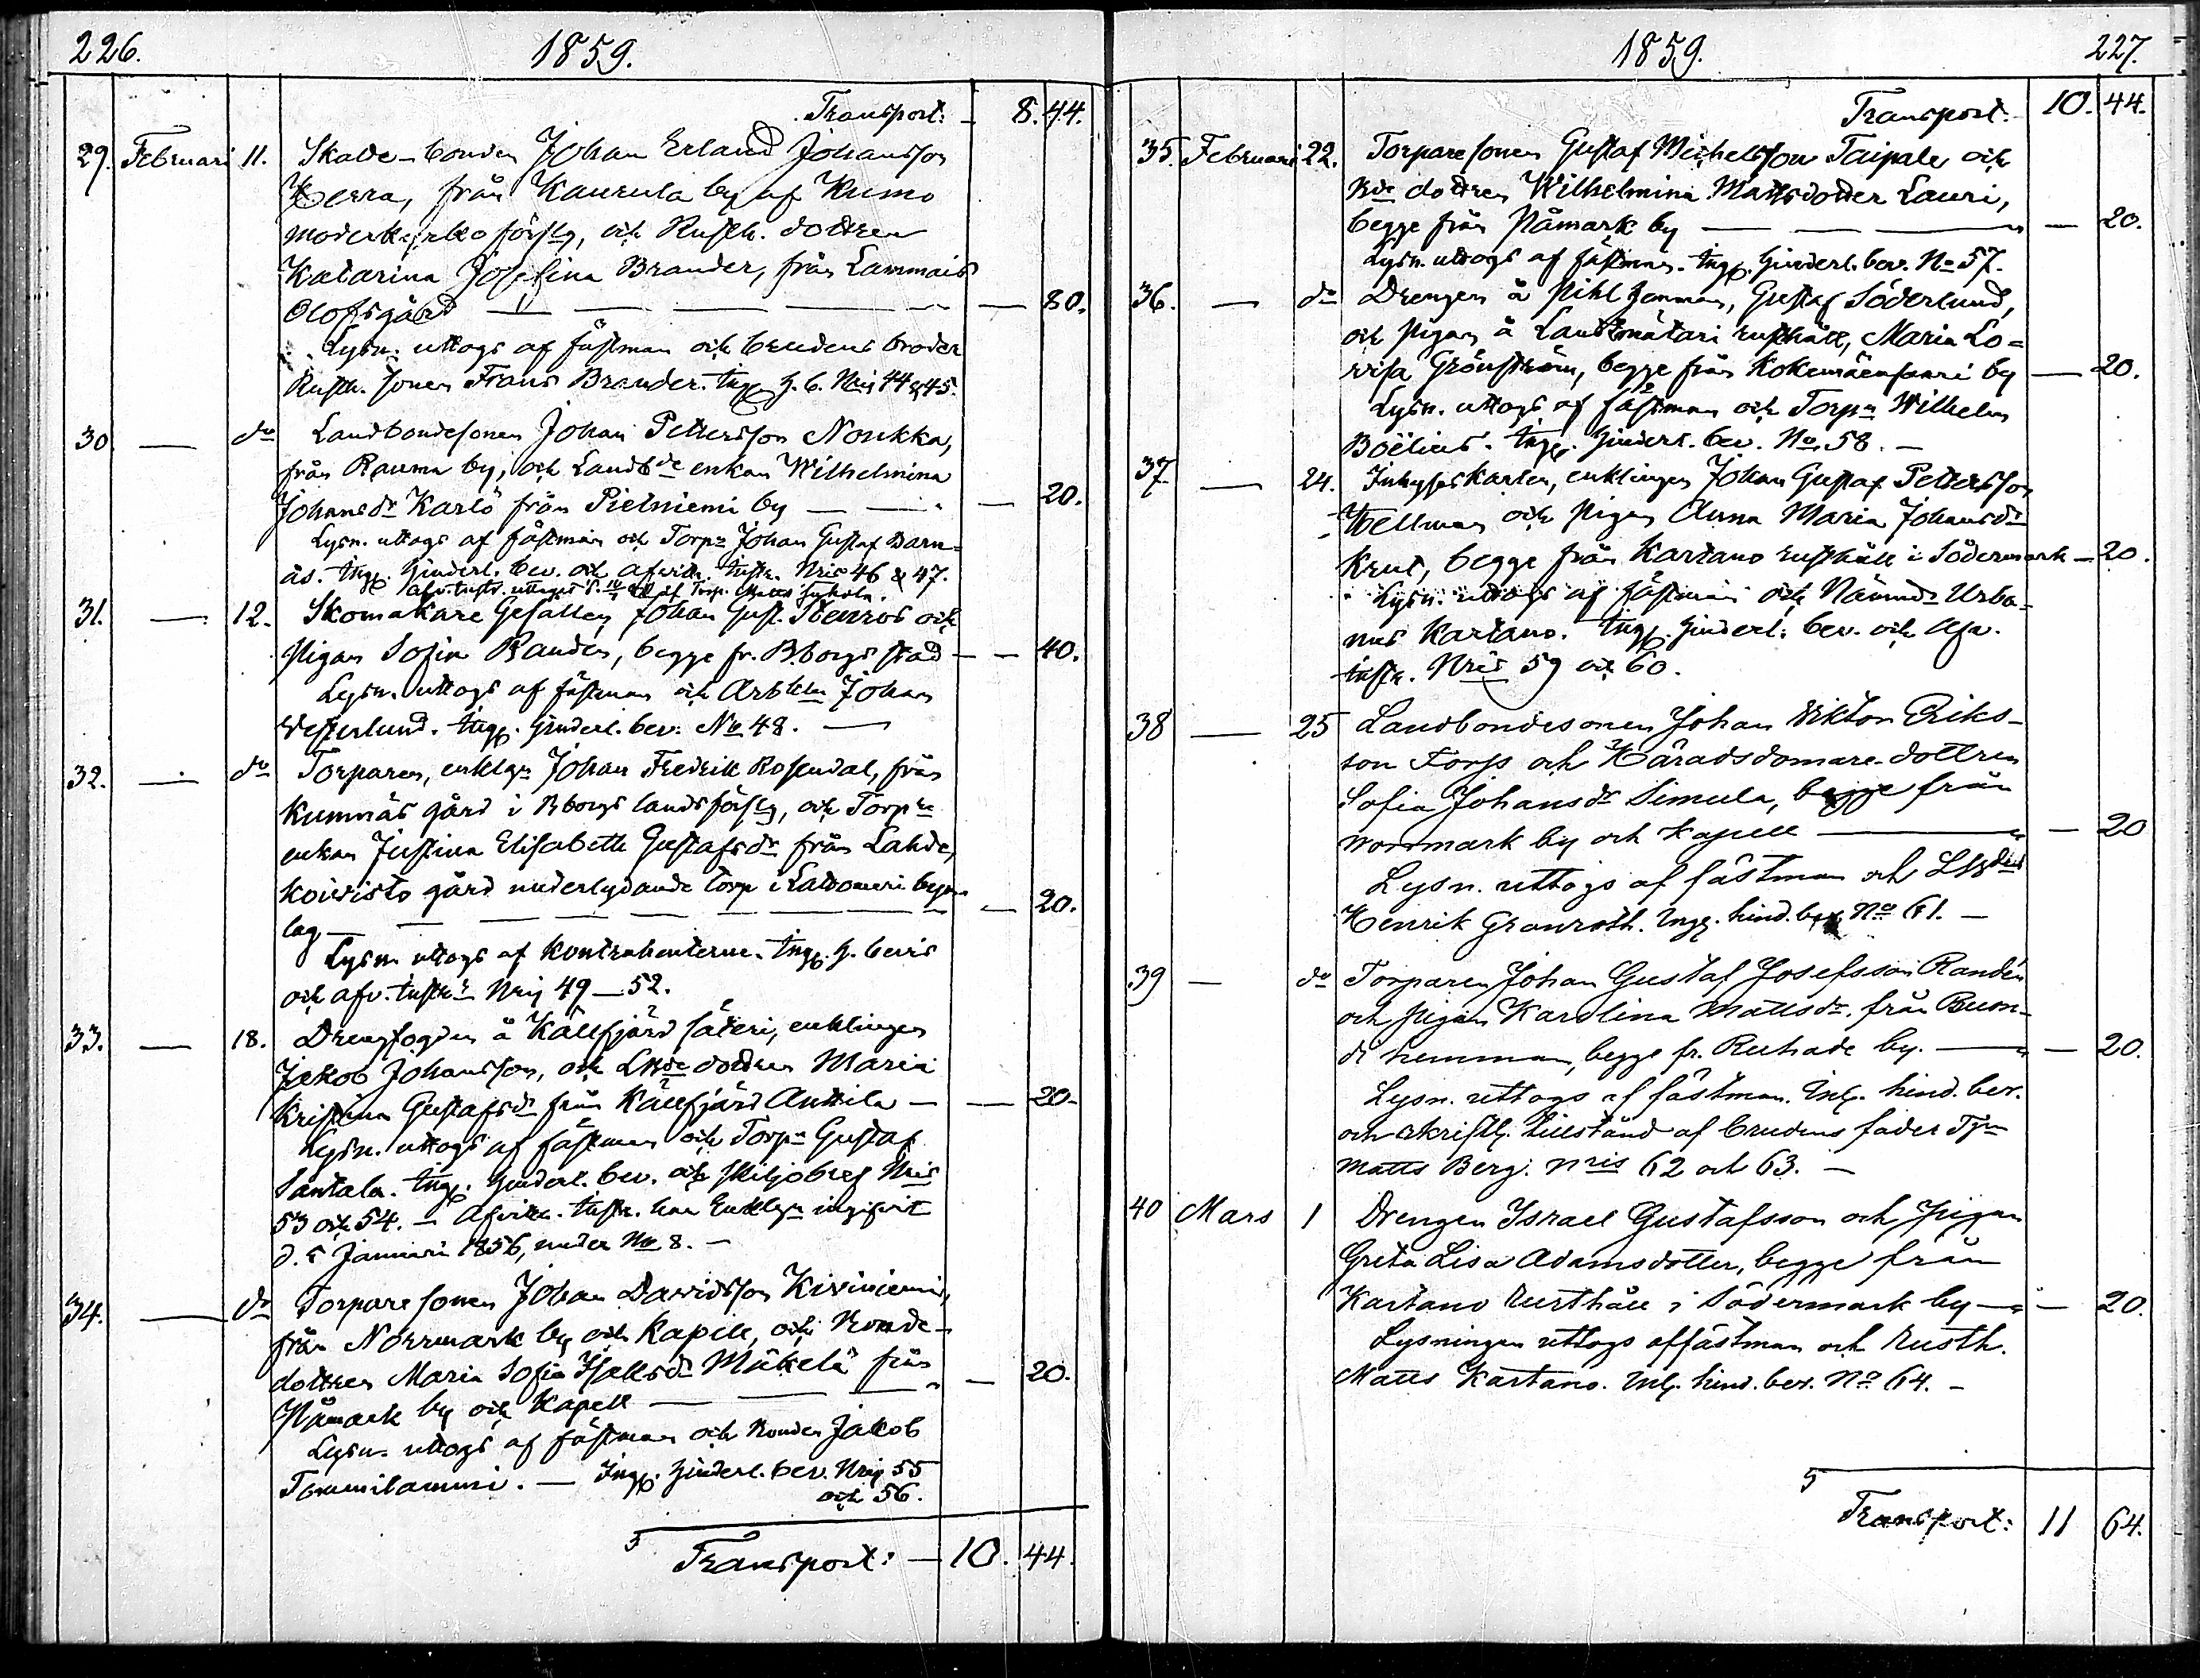 226.
1859.
Transport: 8. 44.
29. Februari 11. Skatte-bonden Johan Erland Johansson
Herra, från Kaurula by af Kumo
moderkyrko förslg, och Rusth. dottren
Katarina Josefina Brander, från Lammais
Olofsgård — 80.
Lysn. uttogs af fästman och brudens broder
Rusth. sonen Frans Brander. Ingg. h. b. Nris 44 & 45.
30 — do Landbondesonen Johan Pettersson Noukka,
från Rauma by, och Landbde enkan Wilhelmina
Johansdr Karlö från Pietniemi by — 20.
Lysn. uttogs af fästman och Torpn Johan Gustaf Barn-
ås. Ingg. Hinderl. bev. och afvittr. instr. Nris 46 & 47.
Afv. instr. uttaget af Torp. Matts
31. — 12. Skomakare Gesällen Johan Gust. Stenros och
Pigan Sofia Randen, begge fr. B.borgs stad — 40.
Lysn. uttogs af fästman och Arbkln Johan
Westerlund. Ingg. hinderl. bev. No 48. —
32. — do Torparen, enklgn Johan Fredrik Rosendal, från
Kumnäs gård i Bborgs landsförslg, och Torpre
enkan Justina Elisabeth Gustafsdr från Lahde,
Koivisto gård underlydande torp i Lattomeri bya-
lag — 20.
Lysn. uttogs af Kontrahenterne. Ingg. h. bevis
och afv. instr. Nris 49—52.
33. — 18. Drengfogden å Källfjärd säteri, enklingen
Jakob Johansson, och Lbde dottren Maria
Kristina Gustafsdr från Källfjärd Anttila — 20.
Lysn. uttogs af fästman och Torpn Gustaf
Santala. Ingg. hinderl. bev. och skiljobref Nris
53 och 54. — Afvittr. instr. har Enklgn ingifvit
d. 5 Januari 1856, under No 8. —
34. — do Torparesonen Johan Davidsson Kiviniemi,
från Norrmark by och Kapell, och Bonde-
dottren Maria Sofia Isaksdr Mäkelä från
Påmark by och Kapell — 20.
Lysn. uttogs af fästman och Bonden Jakob
Tommilammi. — Ingg. hinderl. bev. Nris 55
och 56.
Transport: — 10. 44.
1859.
227.
Transport. 10. 44.
35. Februari 22. Torparesonen Gustaf Michelsson Taipale och
Bde dottren Wilhelmina Mattsdotter Lauri,
begge från Påmark by — 20.
Lysn. uttogs af fästman. Ingg. hinderl. bev. No 57.
36. — do Drengen å Pihl hemman, Gustaf Söderlund,
och Pigan å Landtmätari rusthåll, Maria Lo-
visa Grönström, begge från Kokemäensaari by — 20.
Lysn. uttogs af fästman och Torpn Wilhelm
Boëlius. Ingg. hinderl. bev. No 58. —
37 — 24. Inhyseskarlen, enklingen Johan Gustaf Pettersson
Wellman och Pigan Anna Maria Johansdr
Krut, begge från Kartano rusthåll i Södermark — 20.
Lysn. uttogs af fästman och Nämndn Urba-
nus Kartano. Ingg. hinderl. bev. och Afv.
instr. Nris 59 och 60.
38 — 25 Landbondesonen Johan Viktor Eriks-
son Torp och Häradsdomare-dottren
Sofia Johansdr Simula, begge från
Norrmark by och Kapell — 20
Lysn. uttogs af fästman och
Henrik Granroth. Ingg. hind. bev. No 61. —
39 — do Torparen Johan Gustaf Josefsson Randén
och Pigan Karolina Mattsdr. från
hemman, begge fr. Ruhade by. — 20.
Lysn. uttogs af fästman. Ing. hind. bev.
och skriftlg. tillstånd af brudens fader Tpn
Matts Berg. Nris 62 och 63. —
40 Mars 1 Drengen Israel Gustafsson och Pigan
Greta Lisa Adamsdotter, begge från
Kartano Rusthåll i Södermark by — 20.
Lysningen uttogs af fästman och Rusth.
Matts Kartano. Ing. hind. bev. No 64. —
Transport: 11 64.